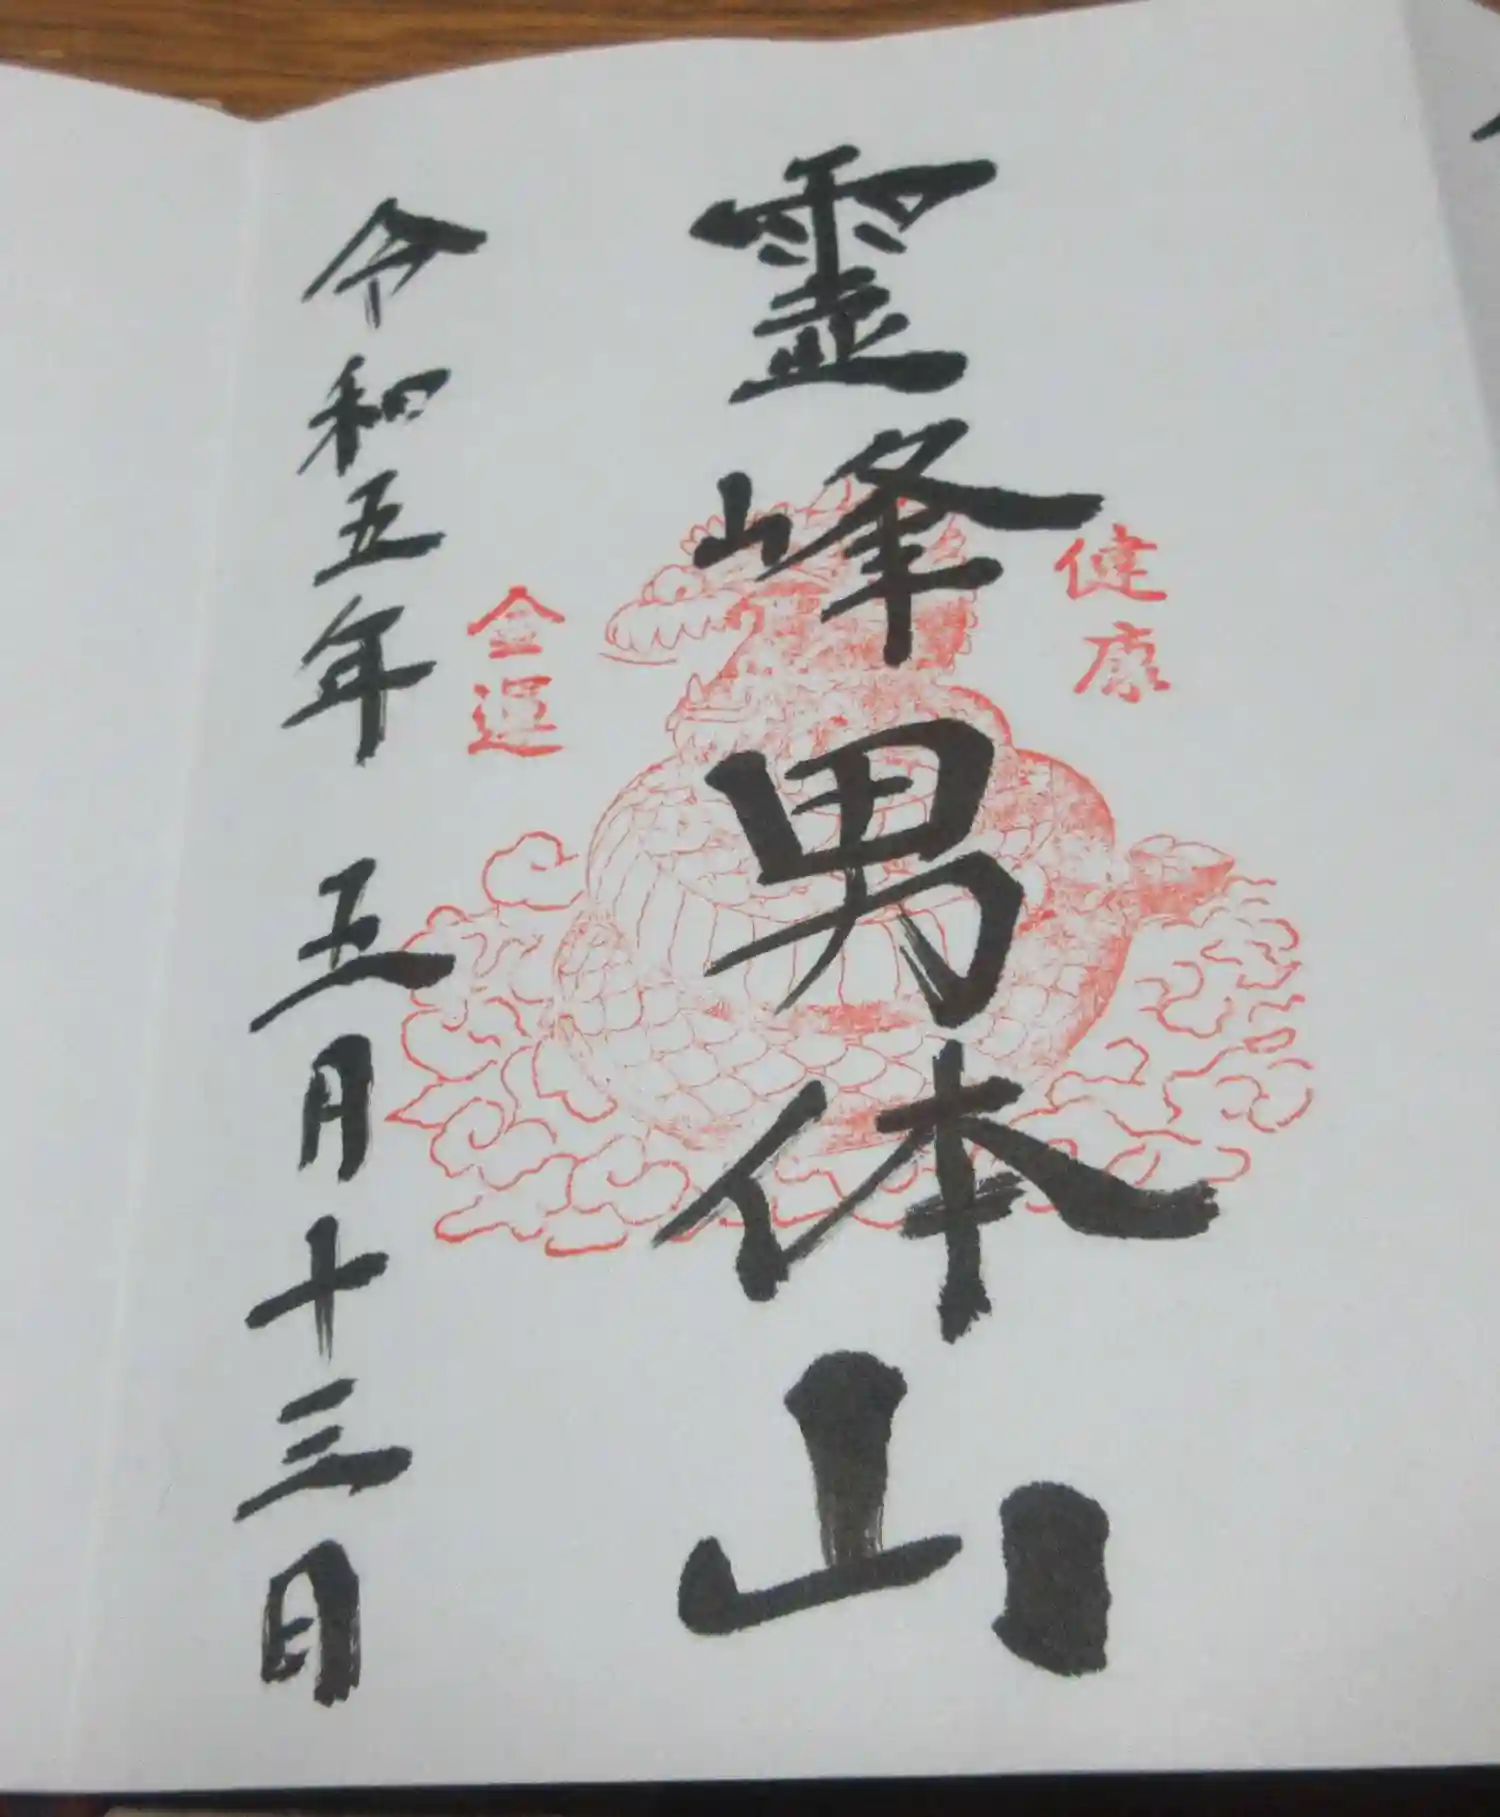 健康
霊峰男体山
金運
令和五年五月十三日